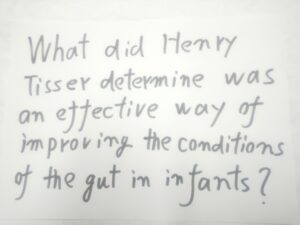 What did Henry
Tisser determine was
an effective way of
improving the conditions
of the gut in infants?